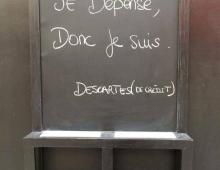 Je Dépense,
Donc Je suis.
DESCARTES (DE CRÉDIT)